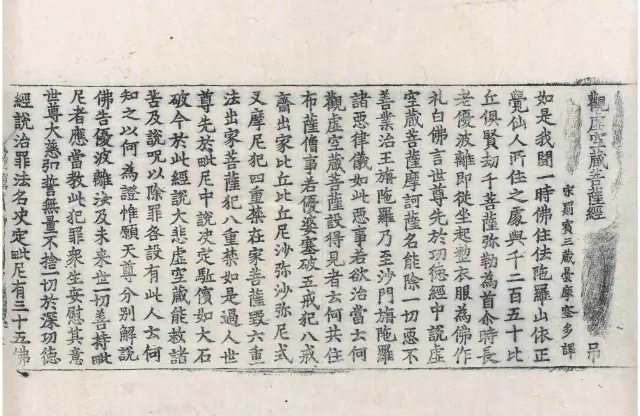 觀虛空藏菩薩經 弔
宋罽賓三藏曇摩蜜多譯
如是我聞一時佛住佉陁羅山依正
覺仙人所住之處與千二百五十比
丘俱賢劫千菩薩弥勒為首尒時長
老優波離即從坐起整衣服為佛作
礼白佛言世尊先於功德經中說虛
空藏菩薩摩訶薩名能除一切惡不
善業治王旃陁羅乃至沙門旃陁羅
諸惡律儀如此惡事若欲治當云何
觀虛空藏菩薩設得見者云何共住
布薩僧事若優婆塞破五戒犯八戒
齋出家比丘比丘尼沙弥沙弥尼式
叉摩尼犯四重禁在家菩薩毀六重
法出家菩薩犯八重禁如是過人世
尊先於毗尼中說决定駈擯如大石
破今於此經說大悲虛空藏能救諸
苦及說呪以除罪咎設有此人云何
知之以何為證惟願天尊分別解說
佛告優波離汝及未來世一切善持毗
尼者應當教此犯罪衆生安慰其意
世尊大慈卽誓無量不捨一切於深功德
經說治罪法名决定毗尼有三十五佛